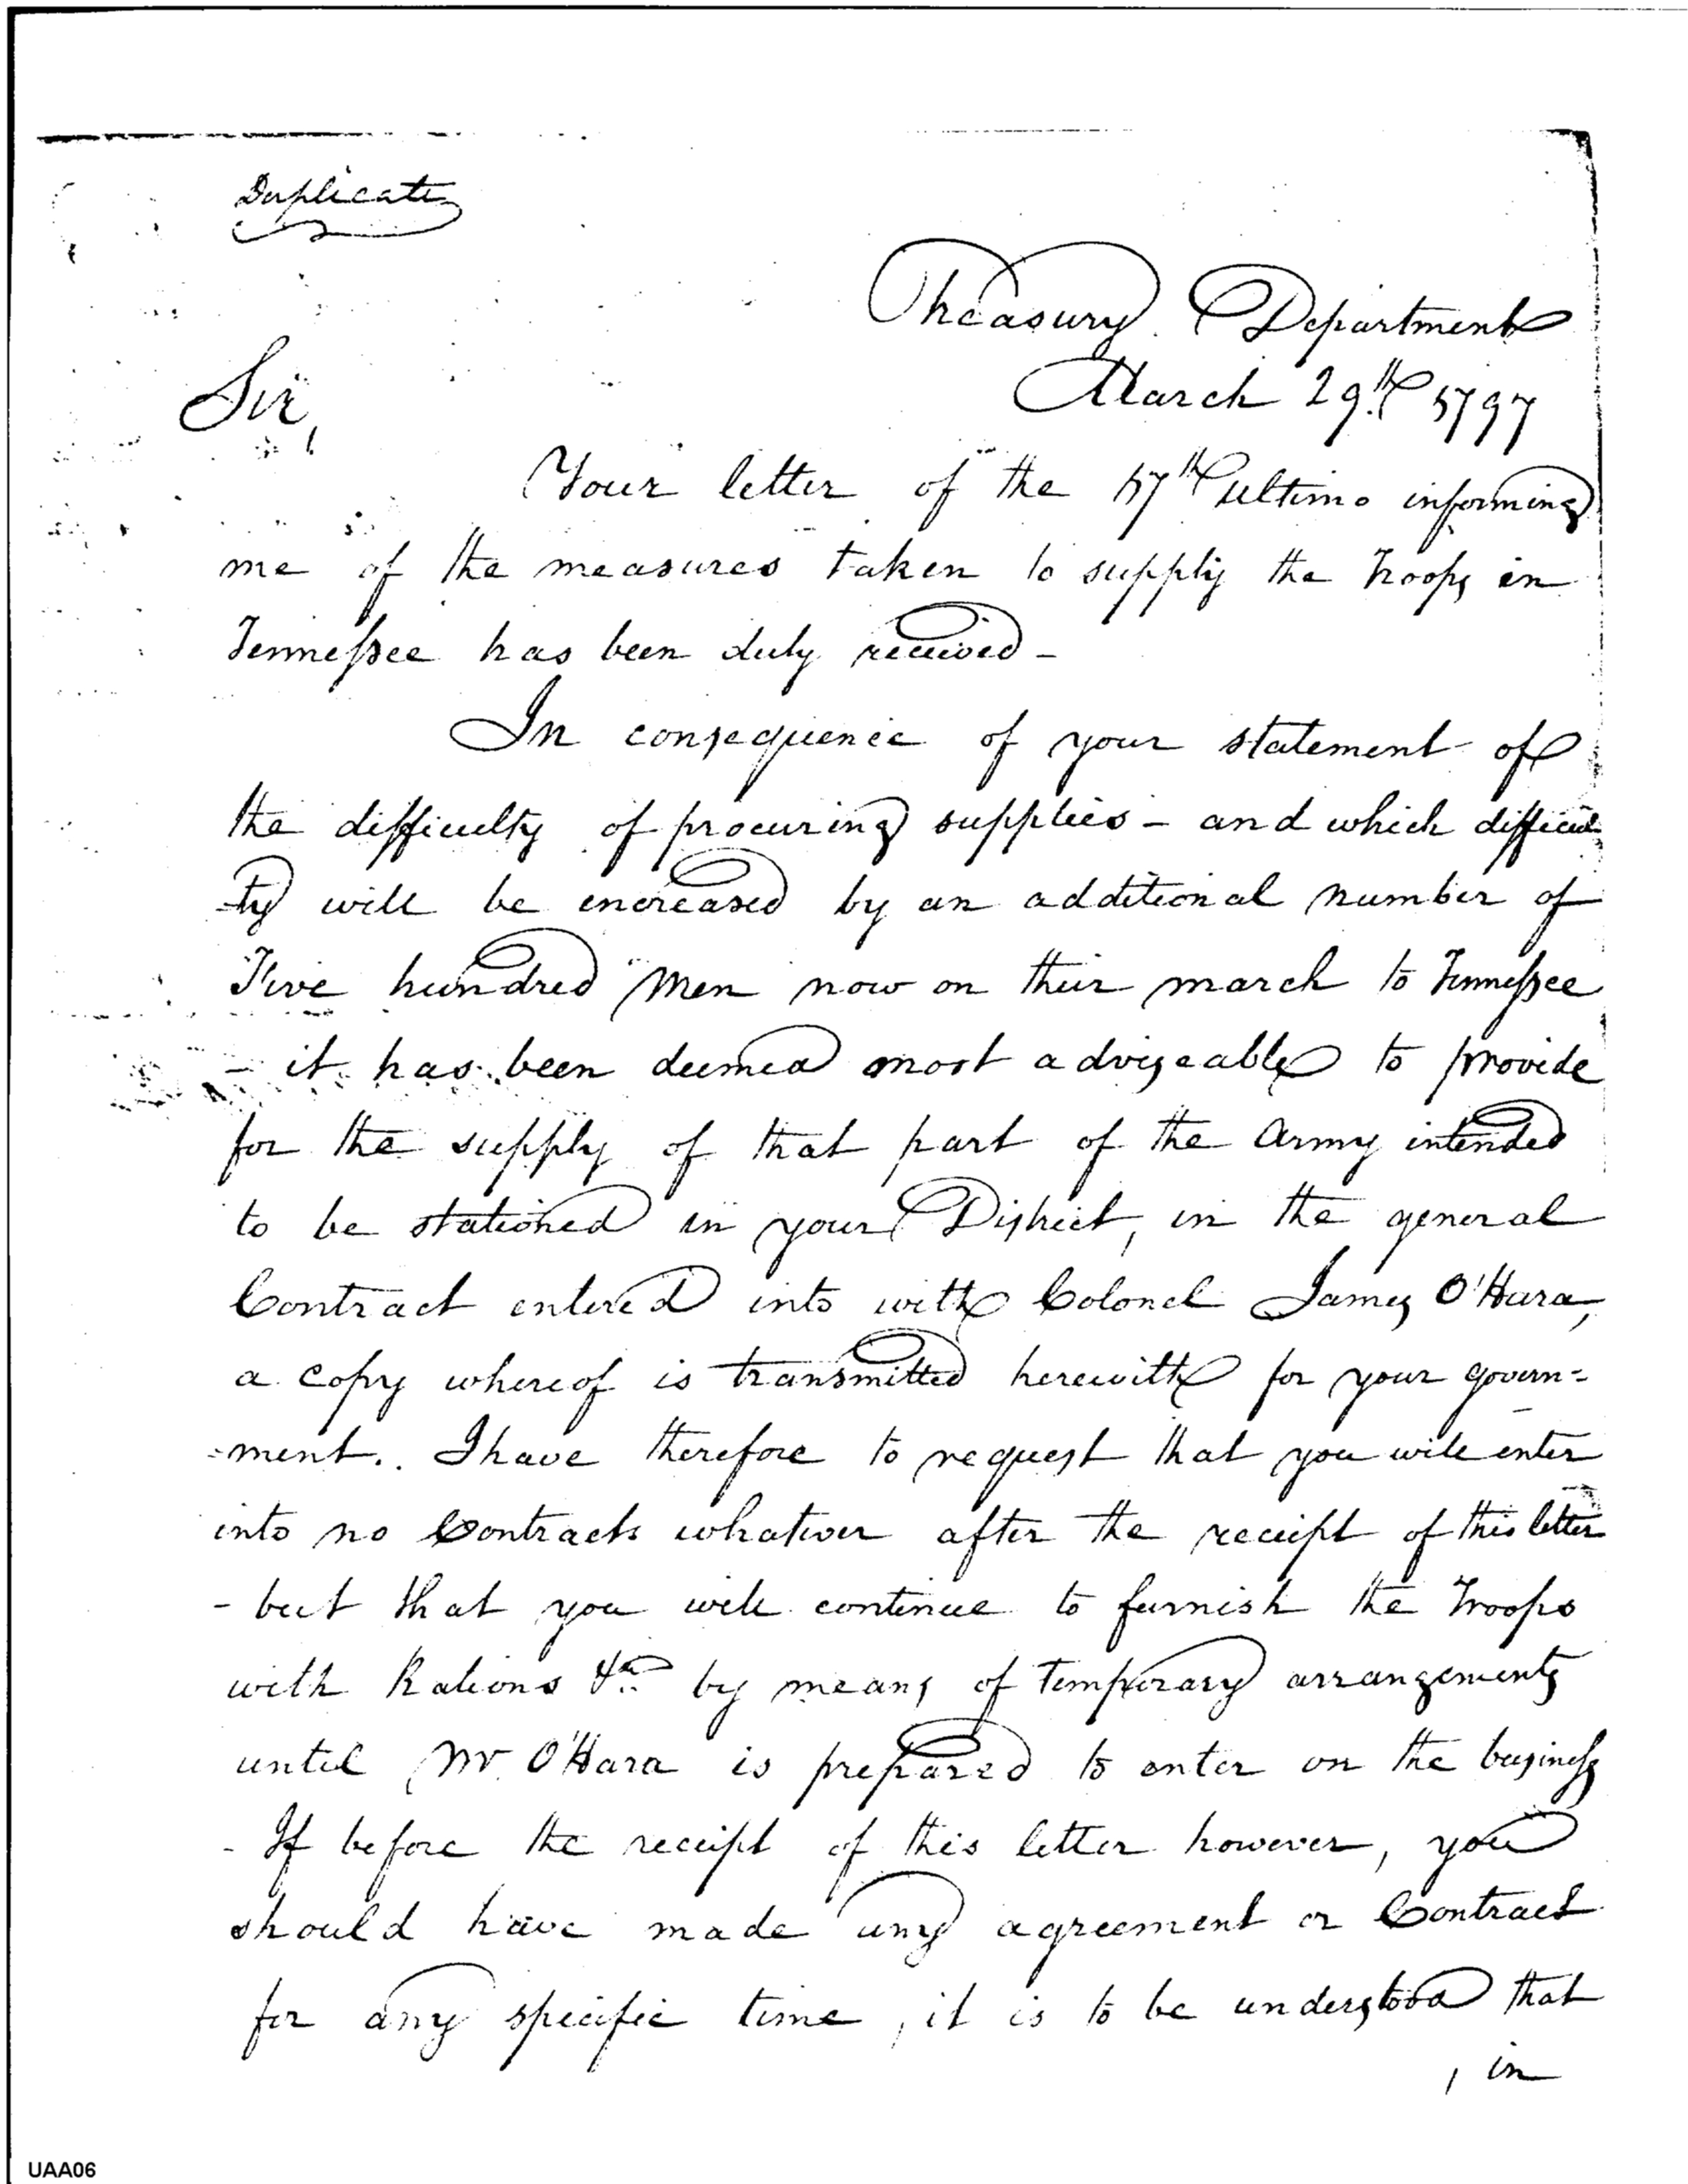 Duplicate
Treasury Department
March 29th 1797
Sir,
Your letter of the 17th ultimo informing
me of the measures taken to supply the Troops in
Tennessee has been duly received -
In consequence of your statement of
the difficulty of procuring supplies - and which difficul
-ty will be encreased by an additional number of
Five hundred Men now on their march to Tennessee
- it has been deemed most adviseable to provide
for the supply of that part of the Army intended
to be stationed in your District, in the general
Contract entered into with Colonel James O'Hara,
a copy whereof is transmitted herewith for your govern=
-ment. I have therefore to request that you will enter
into no Contracts whatever after the receipt of this letter
- but that you will continue to furnish the Troops
with Rations &ca by means of temporary arrangements
until Mr. O'Hara is prepared to enter on the business
- If before the receipt of this letter however, you
should have made any agreement or Contract
for any specific time, it is to be understood that
, in
UAA06